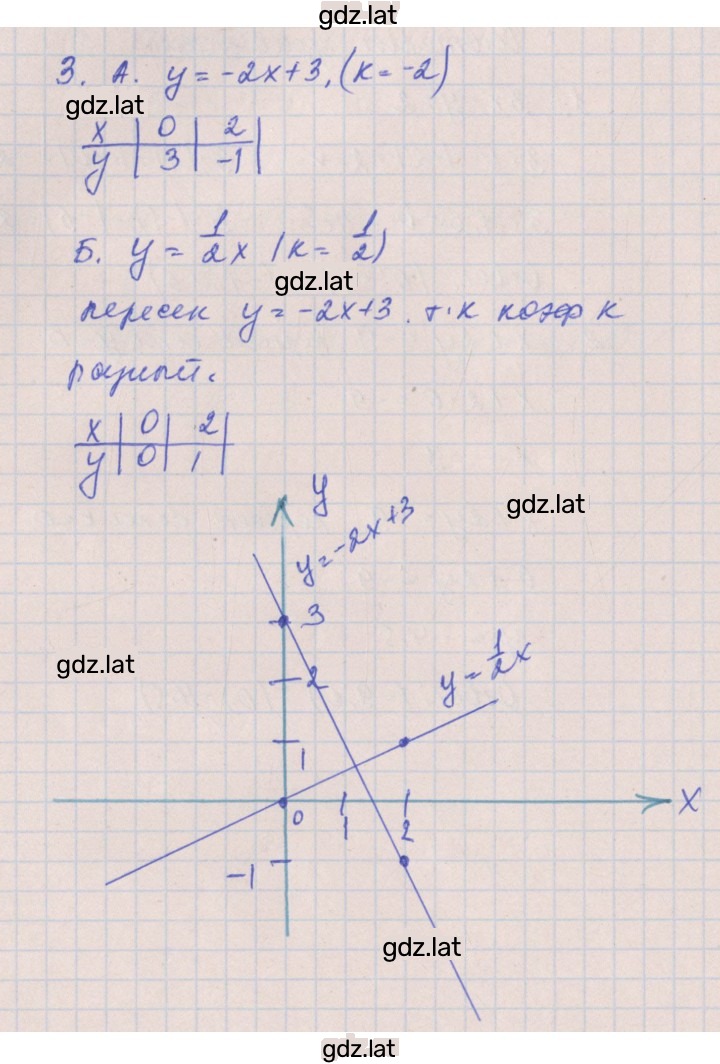 gdz.lat
3. А. y = -2x+3, (к = -2)
gdz.lat
x | 0 | 2 |
y | 3 | -1 |
Б. y = 1/2 x (к = 1/2)
gdz.lat
пересек y = -2x+3. т.к коэф к
разный.
x | 0 | 2 |
y | 0 | 1 |
y
gdz.lat
y = -2x+3
3
gdz.lat
2
y = 1/2 x
1
0
1
2
x
-1
gdz.lat
gdz.lat